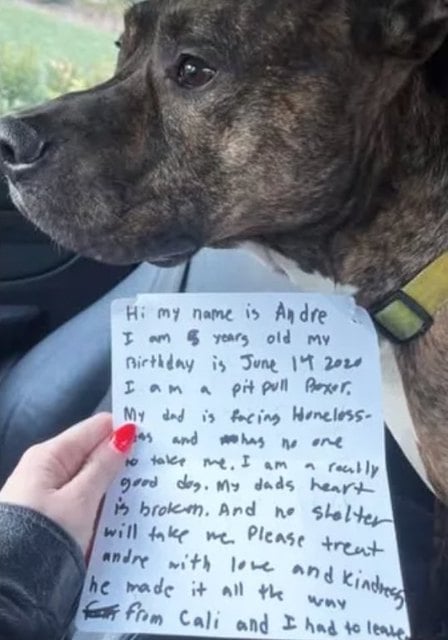 Hi my name is Andre
I am 5 years old my
Birthday is June 14 2020
I am a pit pull Boxer.
My dad is facing Honeless-
and has no one
to take me. I am a really
good dog. My dads heart
is broken. And no shelter
will take me. Please treat
andre with love and kindness
he made it all the way
from Cali and I had to leave